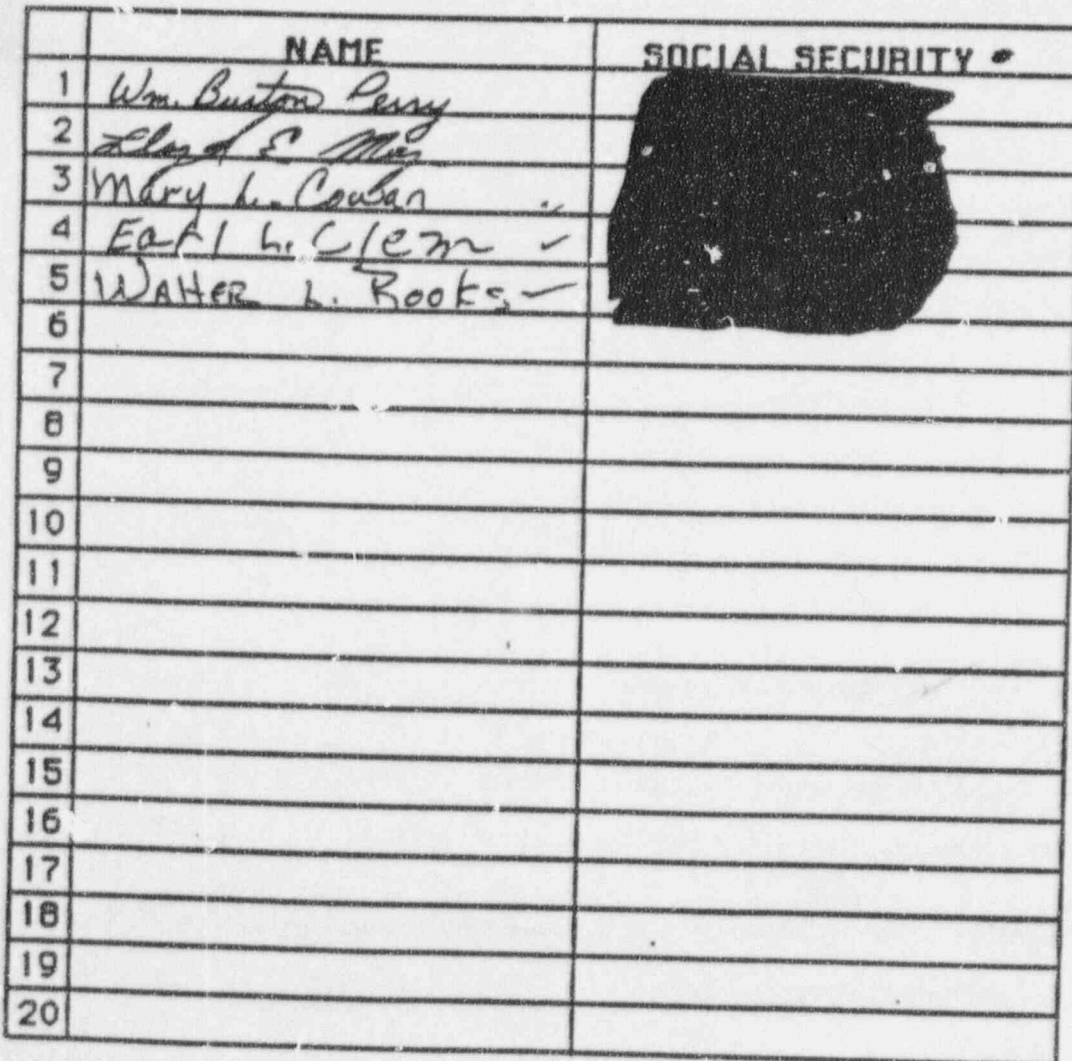 NAME SOCIAL SECURITY #
1 Wm. Burton Perry
2 Lloyd E
3 Mary L. Cowan
4 Earl L. Clem ✓
5 WALTER L. Rooks ✓
6
7
8
9
10
11
12
13
14
15
16
17
18
19
20